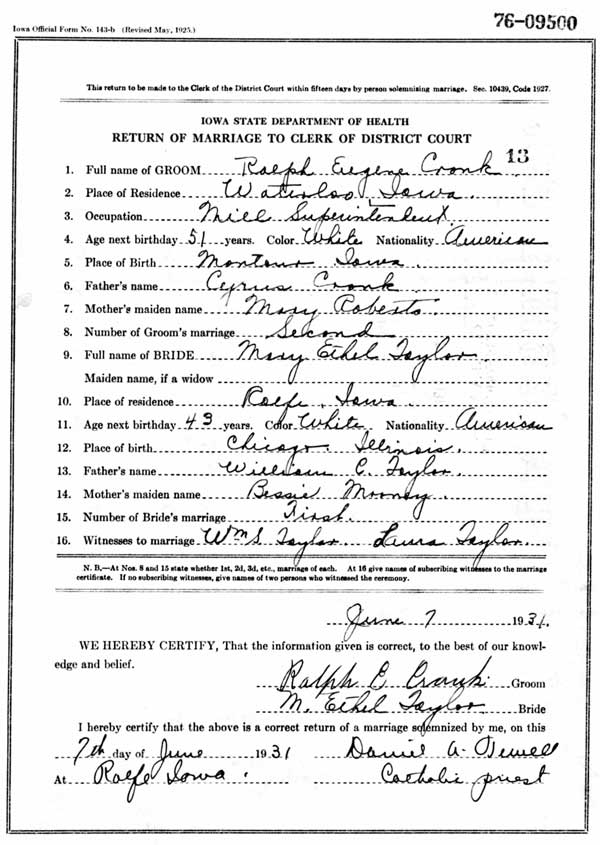 76-09500
Iowa Official Form No. 143-b (Revised May, 1925.)
This return to be made to the Clerk of the District Court within fifteen days by person solemnizing marriage. Sec. 10439, Code 1927.
IOWA STATE DEPARTMENT OF HEALTH
RETURN OF MARRIAGE TO CLERK OF DISTRICT COURT
13
1. Full name of GROOM Ralph Eugene Cronk
2. Place of Residence Waterloo, Iowa.
3. Occupation Mill Superintendent
4. Age next birthday 51 years. Color White Nationality American
5. Place of Birth Montour Iowa
6. Father's name Cyrus Cronk
7. Mother's maiden name Mary Roberts
8. Number of Groom's marriage Second
9. Full name of BRIDE Mary Ethel Taylor
Maiden name, if a widow
10. Place of residence Rolfe, Iowa.
11. Age next birthday 43 years. Color White Nationality American
12. Place of birth Chicago. Illinois.
13. Father's name William C. Taylor.
14. Mother's maiden name Bessie Mooney.
15. Number of Bride's marriage First.
16. Witnesses to marriage Wm S Taylor. Laura Taylor.
N. B.—At Nos. 8 and 15 state whether 1st, 2d, 3d, etc., marriage of each. At 16 give names of subscribing witnesses to the marriage
certificate. If no subscribing witnesses, give names of two persons who witnessed the ceremony.
June 7 1931.
WE HEREBY CERTIFY, That the information given is correct, to the best of our knowl-
edge and belief.
Ralph E Cronk Groom
M. Ethel Taylor Bride
I hereby certify that the above is a correct return of a marriage solemnized by me, on this
7th day of June 1931 Daniel A.
At Rolfe Iowa. Catholic priest